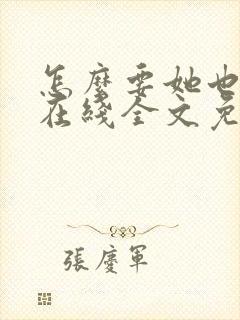 怎麼要她也
在綫全文免
張慶軍